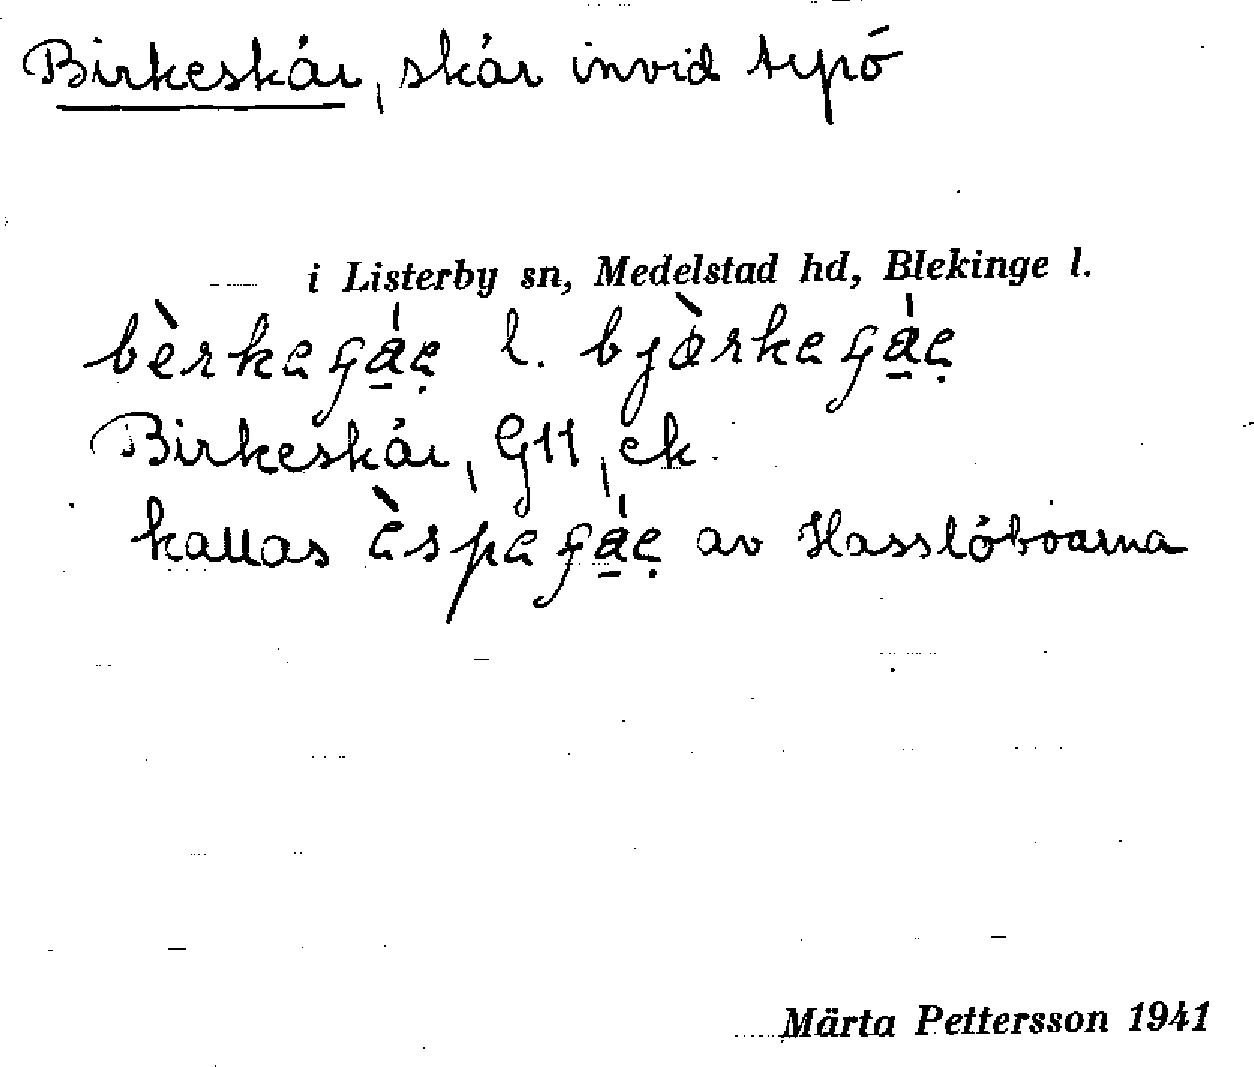 Birkeskär, skär invid Arpö
i Listerby sn, Medelstad hd, Blekinge l.
l.
Birkeskär, G11, ek
kallas av Hasslöboarna
Märta Pettersson 1941